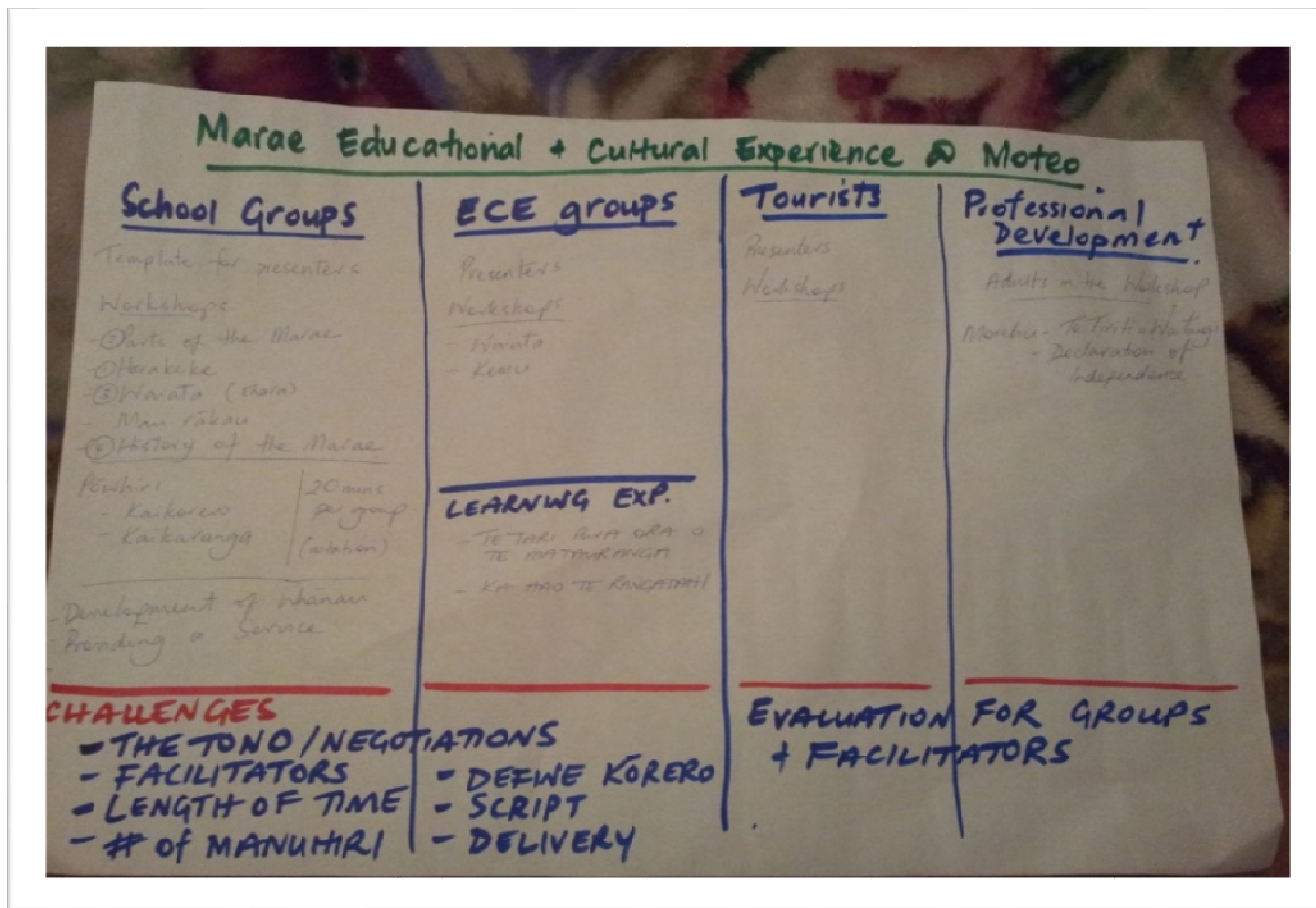 Marae Educational + Cultural Experience @ Moteo.
School Groups
Template for presenters
Workshops
- ② Parts of the Marae
- ① Harakeke
- ③ Waiata
- Mau rākau
- ④ History of the Marae
Pōwhiri
- Kaikorero
- Kaikaranga
20 mins
per group
(rotation)
- Development of Whānau
- Providing a Service
ECE groups
Presenters
Workshops
- Waiata
- Kemu
LEARNING EXP.
- TE TARI PUNA ORA O
TE MATAURANGA
- KA HAO TE RANGATAHI
Tourists
Presenters
Workshops
Professional
Development.
Adults in the Workshop
- Te Tiriti o Waitangi
- Declaration of
Independence
CHALLENGES
- THE TONO / NEGOTIATIONS
- FACILITATORS
- LENGTH OF TIME
- # of MANUHIRI
- DEFINE KŌRERO
- SCRIPT
- DELIVERY
EVALUATION FOR GROUPS
+ FACILITATORS